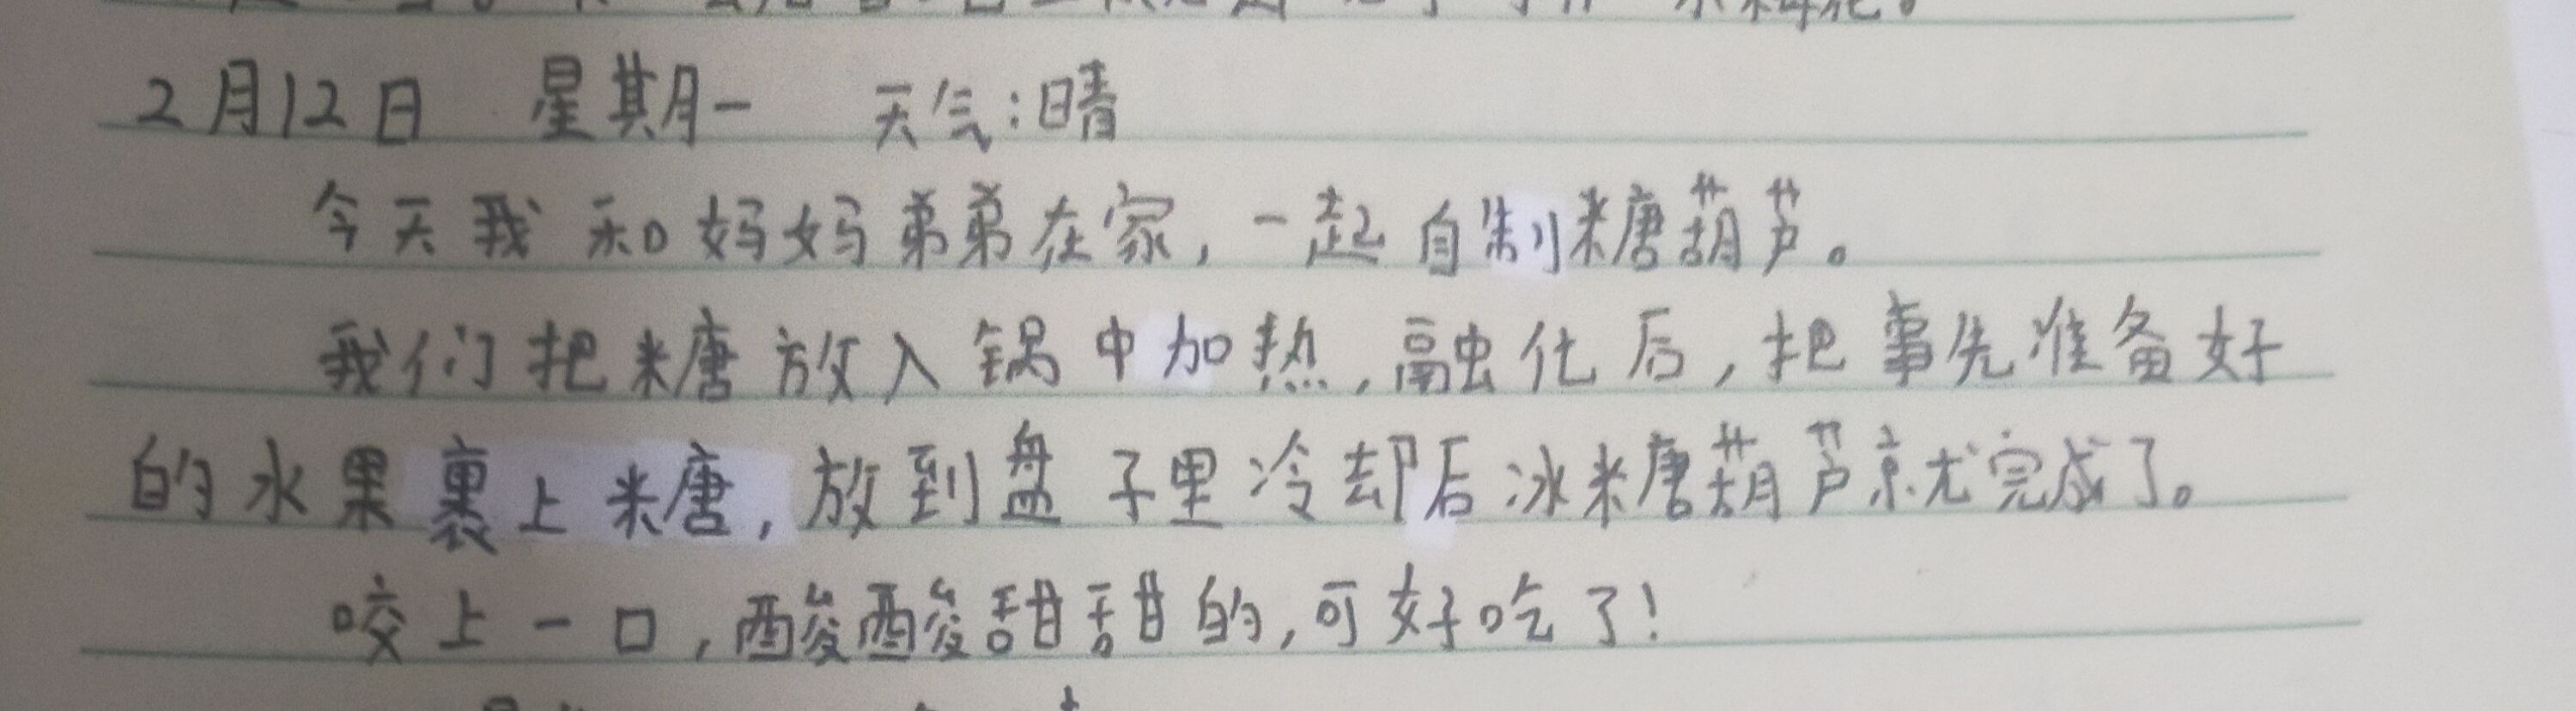 2月12日 星期一 天气:晴
今天我和妈妈弟弟在家,一起自制糖葫芦。
我们把糖放入锅中加热,融化后,把事先准备好
的水果裹上糖,放到盘子里冷却后冰糖葫芦就完成了。
咬上一口,酸酸甜甜的,可好吃了!